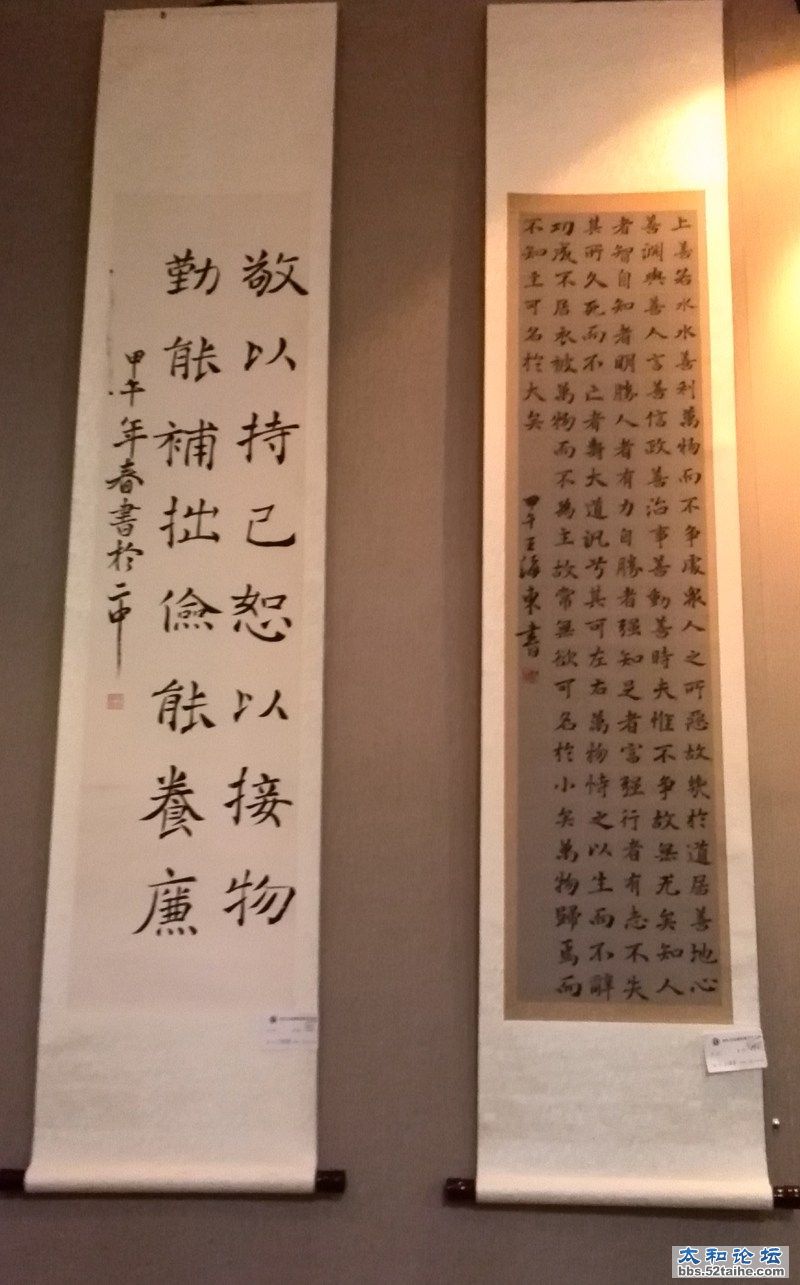 敬以持己恕以接物
勤能補拙儉能養廉
甲午年春書於二中
上善若水水善利萬物而不争處衆人之所惡故幾於道居善地心
善渊與善人言善信政善治事善動善時夫惟不争故無尤矣知人
者智自知者明勝人者有力自勝者强知足者富强行者有志不失
其所久死而不亡者壽大道汎兮其可左右萬物恃之以生而不辭
功成不居衣被萬物而不為主故常無欲可名於小矣萬物歸焉而
不知主可名於大矣
甲午王海東書
太和论坛
bbs.52taihe.com